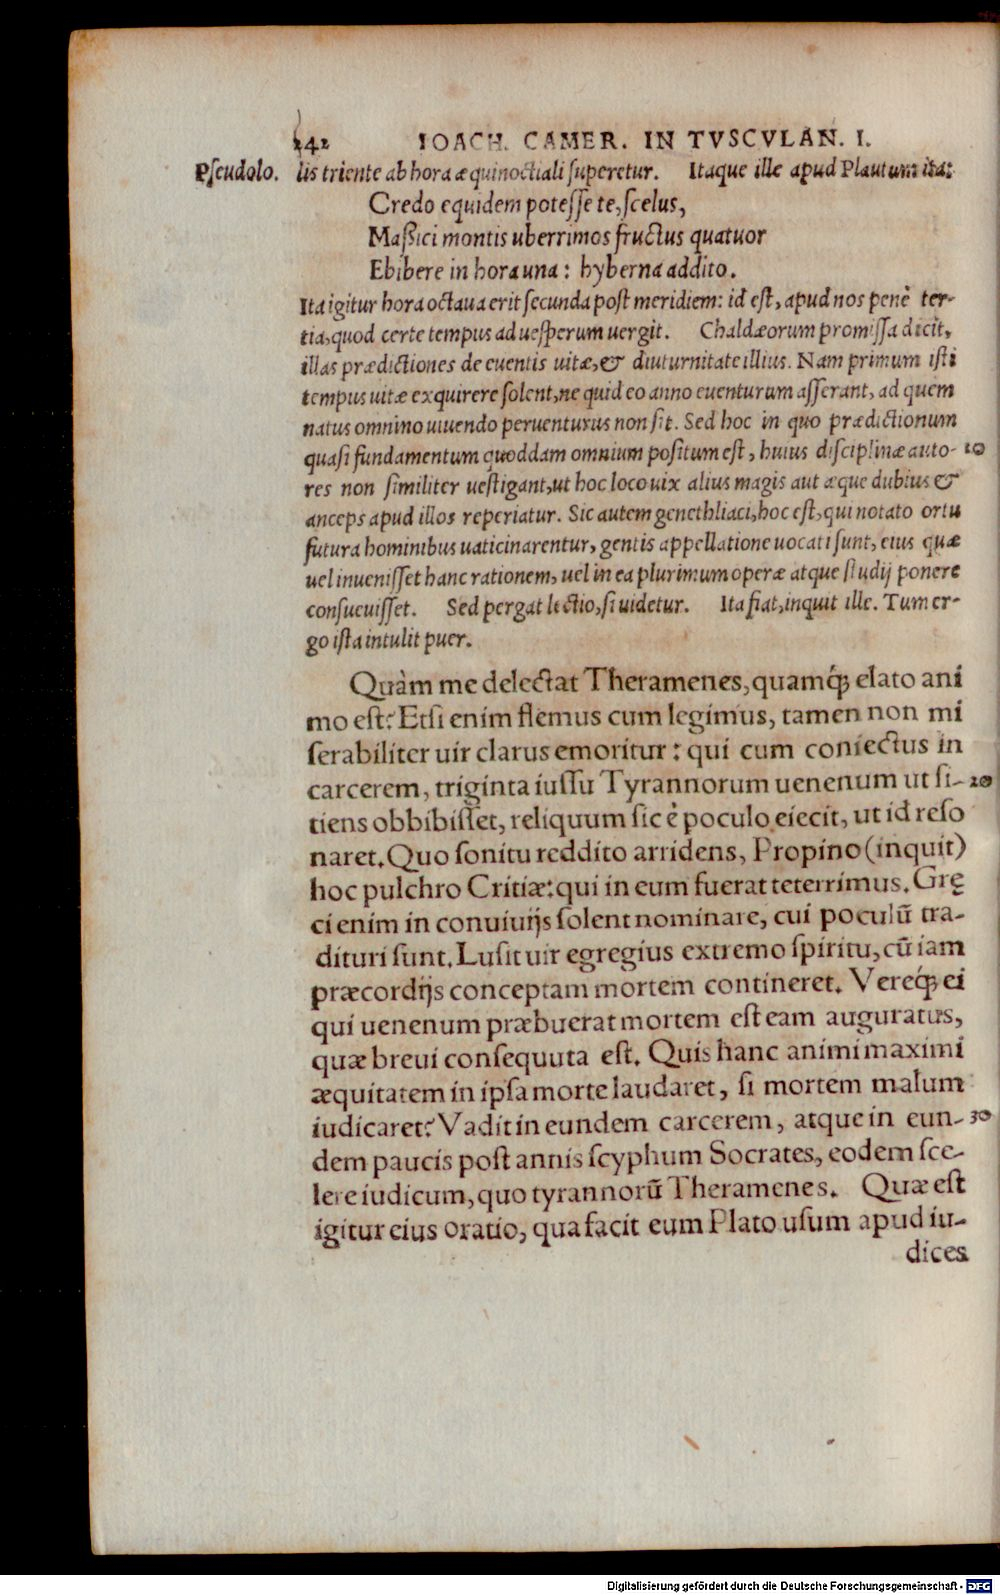 242 IOACH. CAMER. IN TVSCVLAN. I.
Pſeudolo. lis triente ab hora æquinoctiali ſuperetur. Itaque ille apud Plautum ita:
Credo equidem poteſſe te, ſcelus,
Maßici montis uberrimos fructus quatuor
Ebibere in hora una: hyberna addito.
Ita igitur hora octaua erit ſecunda poſt meridiem: id eſt, apud nos penè ter-
tia, quod certe tempus ad ueſperum uergit. Chaldæorum promiſſa dicit,
illas prædictiones de euentis uitæ, & diuturnitate illius. Nam primum iſti
tempus uitæ exquirere ſolent, ne quid eo anno euenturum aſſerant, ad quem
natus omnino uiuendo peruenturus non ſit. Sed hoc in quo prædictionum
quaſi fundamentum quoddam omnium poſitum eſt, huius diſciplinæ auto- 10
res non ſimiliter ueſtigant, ut hoc loco uix alius magis aut æque dubius &
anceps apud illos reperiatur. Sic autem genethliaci, hoc eſt, qui notato ortu
futura hominibus uaticinarentur, gentis appellatione uocati ſunt, eius quæ
uel inueniſſet hanc rationem, uel in ea plurimum operæ atque ſtudij ponere
conſueuiſſet. Sed pergat lectio, ſi uidetur. Ita fiat, inquit ille. Tum er-
go iſta intulit puer.
Quàm me delectat Theramenes, quamq́; elato ani
mo eſt? Etſi enim flemus cum legimus, tamen non mi
ſerabiliter uir clarus emoritur: qui cum coniectus in
carcerem, triginta iuſſu Tyrannorum uenenum ut ſi- 20
tiens obbibiſſet, reliquum ſic è poculo eiecit, ut id reſo
naret. Quo ſonitu reddito arridens, Propino (inquit)
hoc pulchro Critiæ: qui in eum fuerat teterrimus. Grę
ci enim in conuiuijs ſolent nominare, cui poculū tra-
dituri ſunt. Luſit uir egregius extremo ſpiritu, cū iam
præcordijs conceptam mortem contineret. Vereq́; ei
qui uenenum præbuerat mortem eſt eam auguratus,
quæ breui conſequuta eſt. Quis hanc animi maximi
æquitatem in ipſa morte laudaret, ſi mortem malum
iudicaret? Vadit in eundem carcerem, atque in eun- 30
dem paucis poſt annis ſcyphum Socrates, eodem ſce-
lere iudicum, quo tyrannorū Theramenes. Quæ eſt
igitur eius oratio, qua facit eum Plato uſum apud iu-
dices
Digitalisierung gefördert durch die Deutsche Forschungsgemeinschaft - DFG